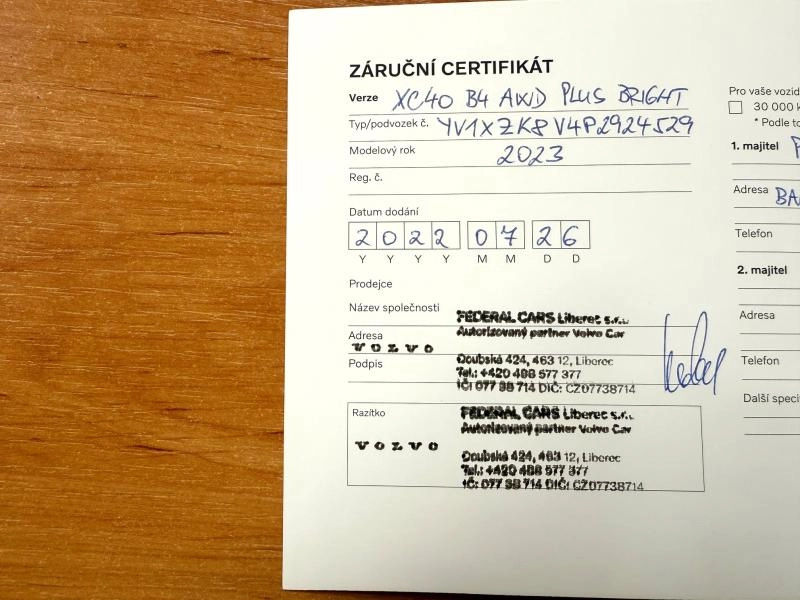 ZÁRUČNÍ CERTIFIKÁT
Verze XC40 B4 AWD PLUS BRIGHT
Typ/podvozek č. YV1XZK8V4P2924529
Modelový rok 2023
Reg. č.
Datum dodání
2 0 2 2 0 7 2 6
Y Y Y Y M M D D
Prodejce
Název společnosti FEDERAL CARS Liberec s.r.o.
Autorizovaný partner Volvo Car
Adresa
VOLVO
Podpis Doubská 424, 463 12, Liberec
Tel.: +420 488 577 377
IČ: 077 38 714 DIČ: CZ07738714
Razítko FEDERAL CARS Liberec s.r.o.
Autorizovaný partner Volvo Car
VOLVO
Doubská 424, 463 12, Liberec
Tel.: +420 488 577 377
IČ: 077 38 714 DIČ: CZ07738714
Pro vaše vozid
30 000 k
* Podle to
1. majitel P
Adresa BA
Telefon
2. majitel
Adresa
Telefon
Další speci